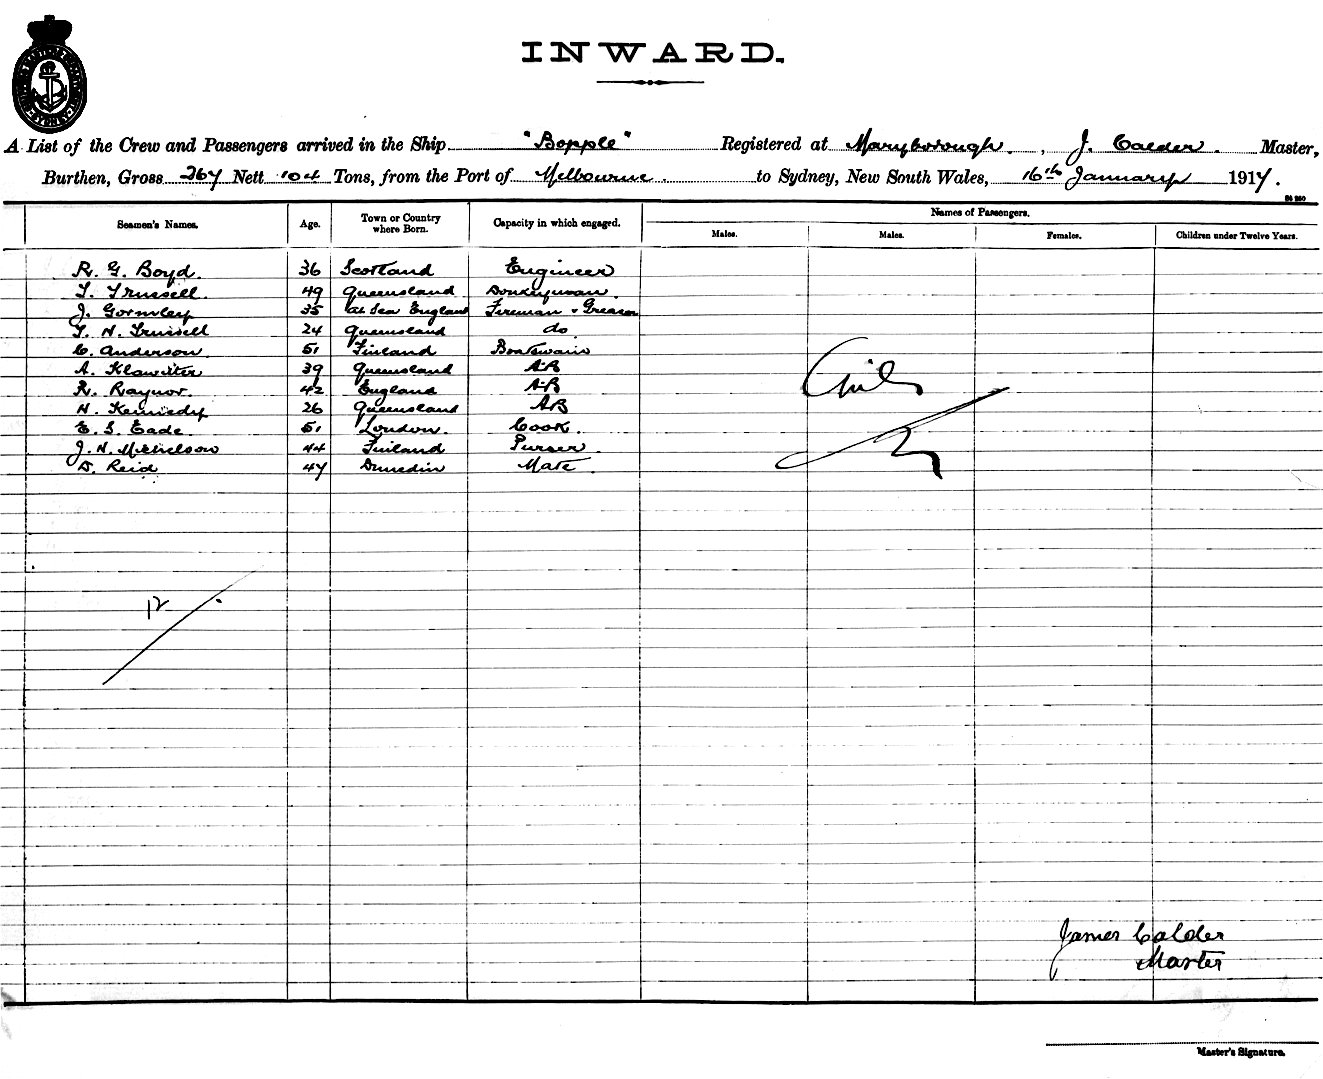 INWARD.
A List of the Crew and Passengers arrived in the Ship "Bopple" Registered at Maryborough, J. Calder. Master,
Burthen, Gross 267 Nett 104 Tons, from the Port of Melbourne. to Sydney, New South Wales, 16th January 1917.
Seamen's Names. Age. Town or Country where Born. Capacity in which engaged. Names of Passengers.
Males. Males. Females. Children under Twelve Years.
R. G. Boyd. 36 Scotland Engineer
T. Trussell. 49 Queensland Donkeyman.
J. Gormley 35 at Sea England Fireman & Greaser
T. H. Trussell 24 Queensland do
C. Anderson 51 Finland Boatswain
A. Klawitter 39 Queensland AB
R. Raynor. 42 England AB
N. Kennedy 26 Queensland AB
E. S. Eade. 51 London. Cook.
J. N. Michelson 44 Finland Purser.
D. Reid 47 Dunedin Mate.
12
James Calder
Master
Master's Signature.